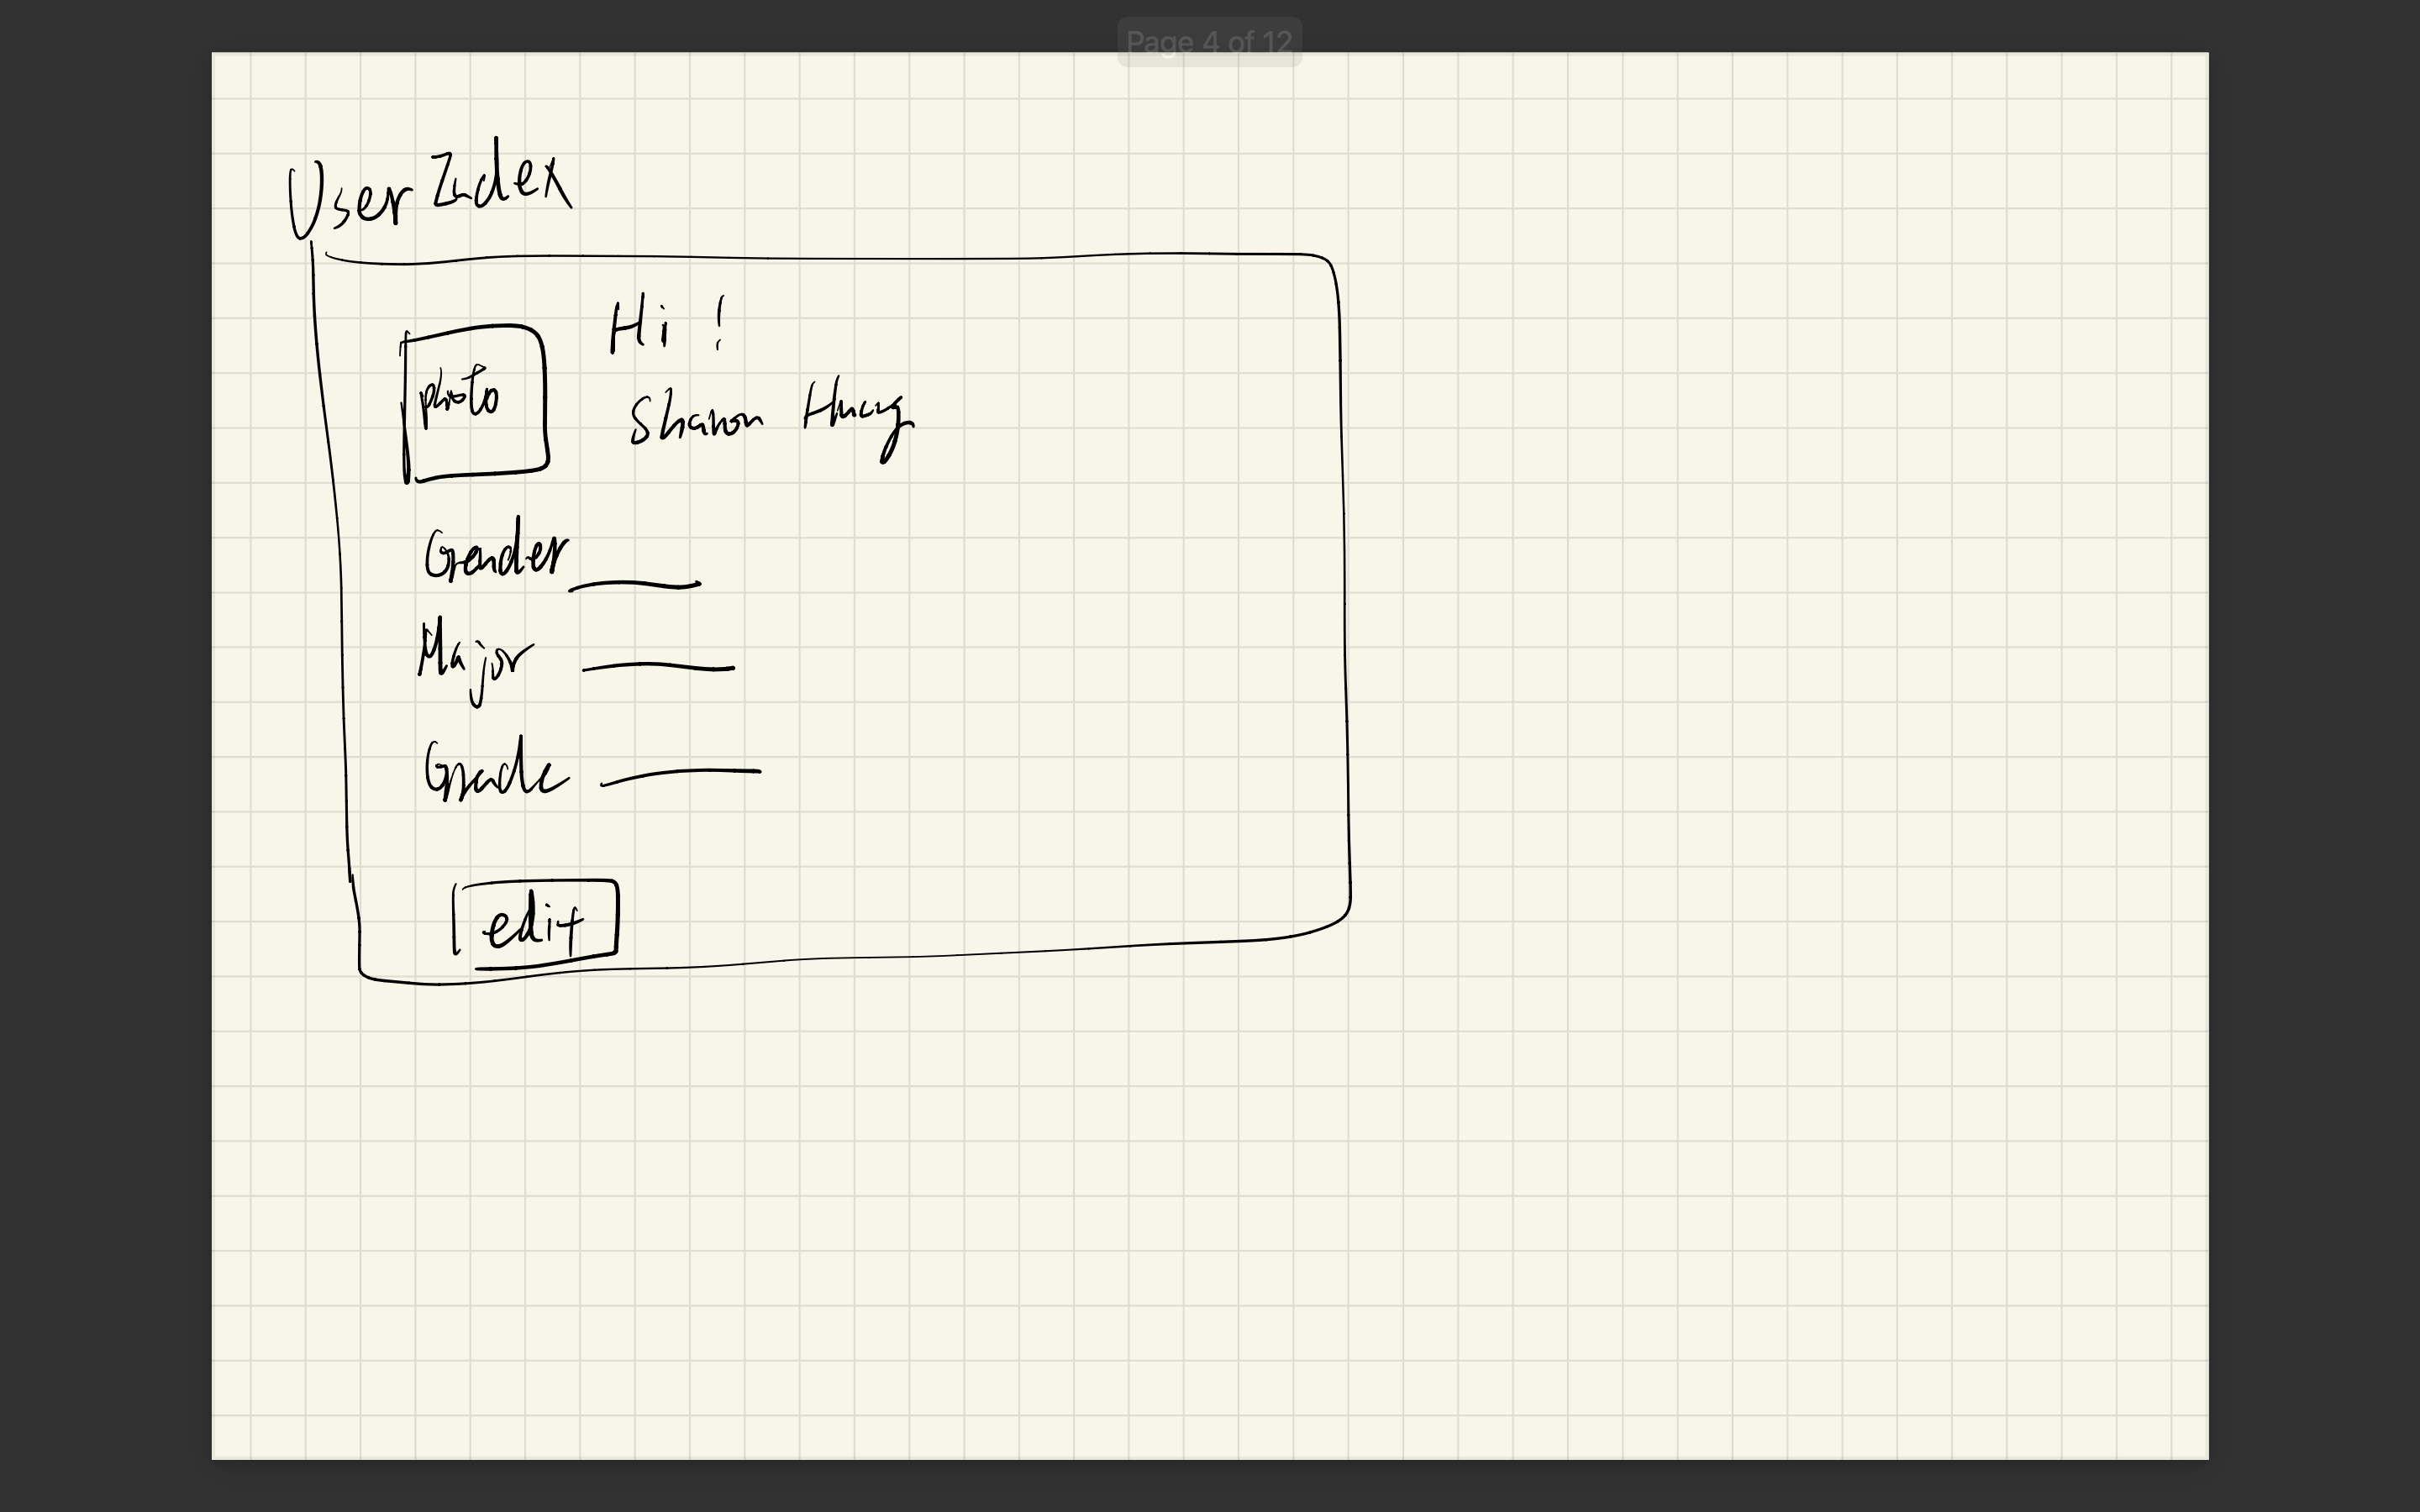 Page 4 of 12
User Index
Hi !
photo
Shawn Huang
Gender
Major
Grade
edit